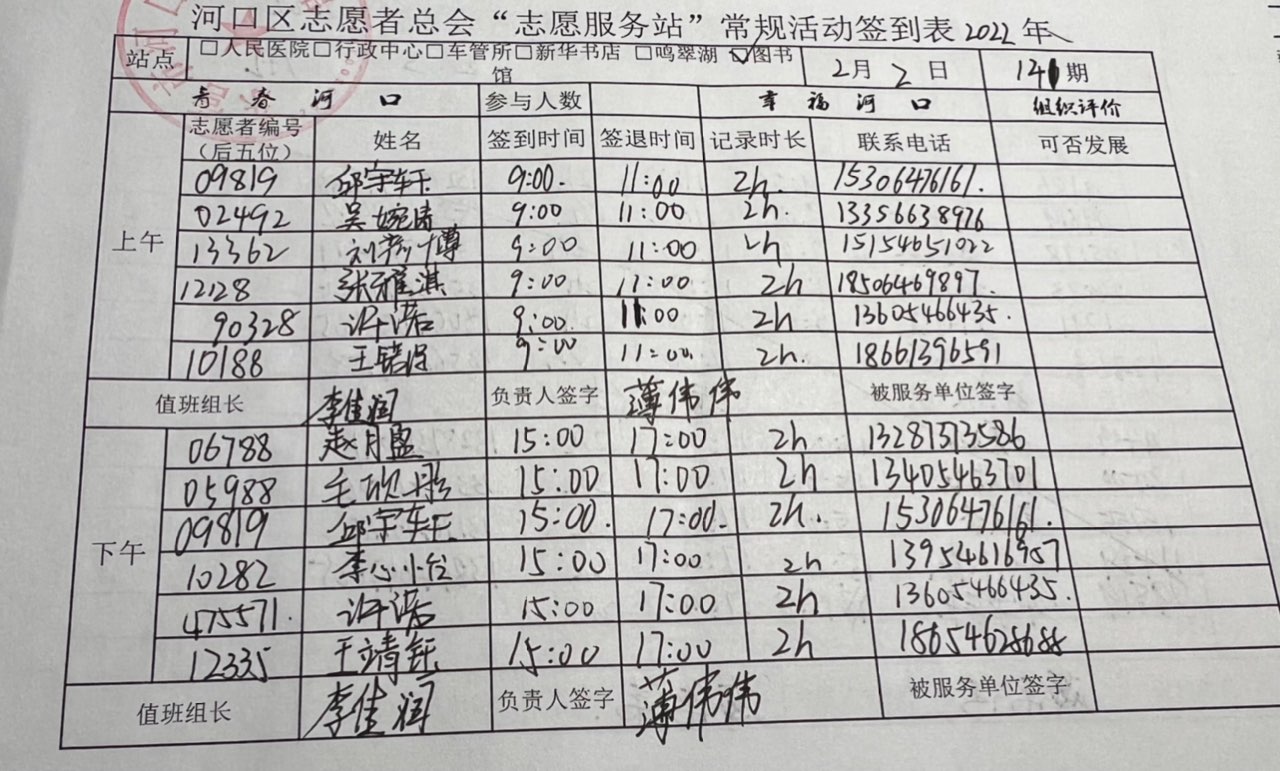 河口区志愿者总会“志愿服务站”常规活动签到表 2022年
站点 □人民医院□行政中心□车管所□新华书店 □鸣翠湖 ☑图书馆 2月 2 日 141期
青春河口 参与人数 幸福河口 组织评价
志愿者编号（后五位） 姓名 签到时间 签退时间 记录时长 联系电话 可否发展
上午
09819 邱宇轩 9:00. 11:00 2h. 15306476161.
02492 吴婉 9:00 11:00 2h. 13356638976
13362 刘 博 9:00 11:00 2h 15154651022
12128 张雅淇 9:00 11:00 2h 18506469897.
90328 许诺 9:00. 11:00 2h 13605466435.
10188 王 9:00 11:00 2h. 18661396591
值班组长 李佳润 负责人签字 薄伟伟 被服务单位签字
下午
06788 赵月盈 15:00 17:00 2h 13287373586
05988 毛欣彤 15:00 17:00 2h 13405463701
09819 邱宇轩 15:00. 17:00. 2h. 15306476161.
10282 李心 15:00 17:00 2h 13954616957
475571. 许诺 15:00 17:00 2h 13605466435.
12335 王靖钰 15:00 17:00 2h 18654628688
值班组长 李佳润 负责人签字 薄伟伟 被服务单位签字